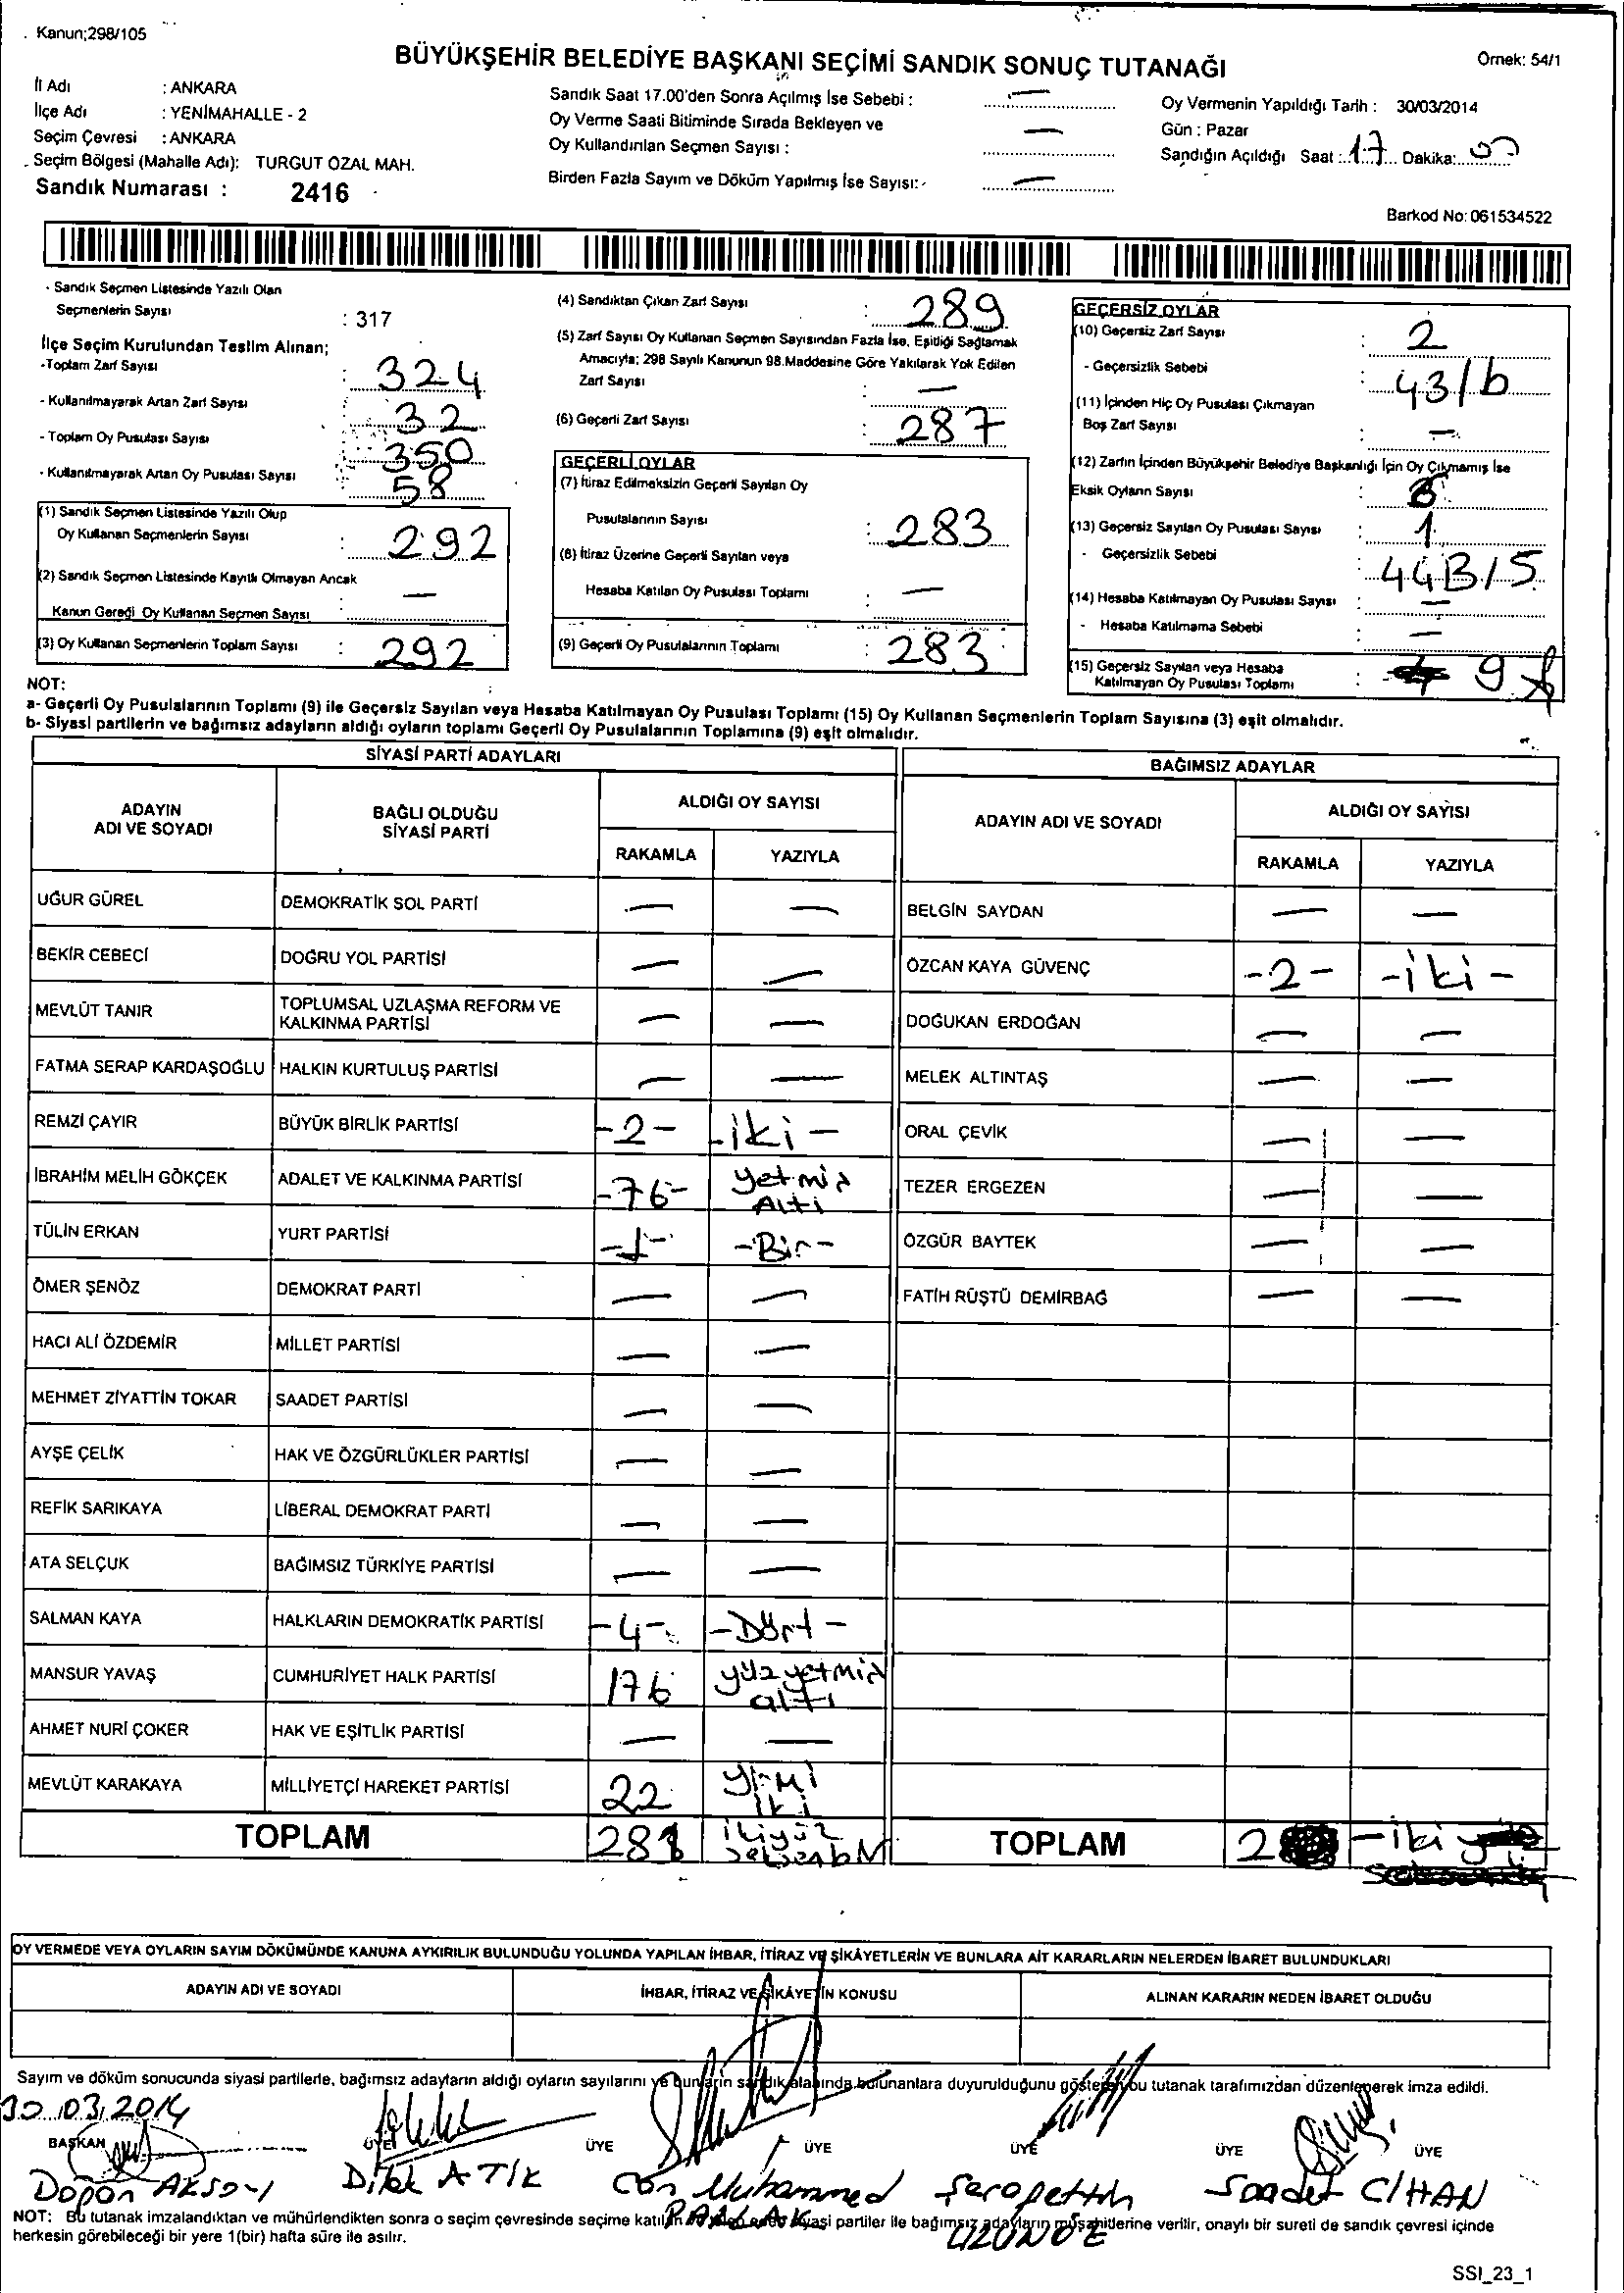 Kanun;298/105
BÜYÜKŞEHİR BELEDİYE BAŞKANI SEÇİMİ SANDIK SONUÇ TUTANAĞI
Örnek: 54/1
İl Adı : ANKARA
İlçe Adı : YENİMAHALLE - 2
Seçim Çevresi : ANKARA
Seçim Bölgesi (Mahalle Adı): TURGUT ÖZAL MAH.
Sandık Numarası : 2416
Sandık Saat 17.00'den Sonra Açılmış İse Sebebi : —
Oy Verme Saati Bitiminde Sırada Bekleyen ve
Oy Kullandırılan Seçmen Sayısı : —
Birden Fazla Sayım ve Döküm Yapılmış İse Sayısı: —
Oy Vermenin Yapıldığı Tarih : 30/03/2014
Gün : Pazar
Sandığın Açıldığı Saat : 17 Dakika:
Barkod No: 061534522
- Sandık Seçmen Listesinde Yazılı Olan
Seçmenlerin Sayısı : 317
İlçe Seçim Kurulundan Teslim Alınan;
-Toplam Zarf Sayısı : 324
- Kullanılmayarak Artan Zarf Sayısı : 32
- Toplam Oy Pusulası Sayısı : 350
- Kullanılmayarak Artan Oy Pusulası Sayısı : 58
(1) Sandık Seçmen Listesinde Yazılı Olup
Oy Kullanan Seçmenlerin Sayısı : 292
(2) Sandık Seçmen Listesinde Kayıtlı Olmayan Ancak
Kanun Gereği Oy Kullanan Seçmen Sayısı : —
(3) Oy Kullanan Seçmenlerin Toplam Sayısı : 292
(4) Sandıktan Çıkan Zarf Sayısı : 289
(5) Zarf Sayısı Oy Kullanan Seçmen Sayısından Fazla İse, Eşitliği Sağlamak
Amacıyla; 298 Sayılı Kanunun 98.Maddesine Göre Yakılarak Yok Edilen
Zarf Sayısı : —
(6) Geçerli Zarf Sayısı : 287
GEÇERLİ OYLAR
(7) İtiraz Edilmeksizin Geçerli Sayılan Oy
Pusulalarının Sayısı : 283
(8) İtiraz Üzerine Geçerli Sayılan veya
Hesaba Katılan Oy Pusulası Toplamı : —
(9) Geçerli Oy Pusulalarının Toplamı : 283
GEÇERSİZ OYLAR
(10) Geçersiz Zarf Sayısı : 2
- Geçersizlik Sebebi : 43/b
(11) İçinden Hiç Oy Pusulası Çıkmayan
Boş Zarf Sayısı : —
(12) Zarfın İçinden Büyükşehir Belediye Başkanlığı İçin Oy Çıkmamış İse
Eksik Oyların Sayısı :
(13) Geçersiz Sayılan Oy Pusulası Sayısı : 1
- Geçersizlik Sebebi : 44B/5
(14) Hesaba Katılmayan Oy Pusulası Sayısı : —
- Hesaba Katılmama Sebebi : —
(15) Geçersiz Sayılan veya Hesaba
Katılmayan Oy Pusulası Toplamı : 9
NOT:
a- Geçerli Oy Pusulalarının Toplamı (9) ile Geçersiz Sayılan veya Hesaba Katılmayan Oy Pusulası Toplamı (15) Oy Kullanan Seçmenlerin Toplam Sayısına (3) eşit olmalıdır.
b- Siyasi partilerin ve bağımsız adayların aldığı oyların toplamı Geçerli Oy Pusulalarının Toplamına (9) eşit olmalıdır.
SİYASİ PARTİ ADAYLARI
ADAYIN ADI VE SOYADI
BAĞLI OLDUĞU SİYASİ PARTİ
ALDIĞI OY SAYISI
RAKAMLA YAZIYLA
UĞUR GÜREL DEMOKRATİK SOL PARTİ — —
BEKİR CEBECİ DOĞRU YOL PARTİSİ — —
MEVLÜT TANIR TOPLUMSAL UZLAŞMA REFORM VE KALKINMA PARTİSİ — —
FATMA SERAP KARDAŞOĞLU HALKIN KURTULUŞ PARTİSİ — —
REMZİ ÇAYIR BÜYÜK BİRLİK PARTİSİ -2- -iki-
İBRAHİM MELİH GÖKÇEK ADALET VE KALKINMA PARTİSİ -76- yetmiş Altı
TÜLİN ERKAN YURT PARTİSİ -1- -Bir-
ÖMER ŞENÖZ DEMOKRAT PARTİ — —
HACI ALİ ÖZDEMİR MİLLET PARTİSİ — —
MEHMET ZİYATTİN TOKAR SAADET PARTİSİ — —
AYŞE ÇELİK HAK VE ÖZGÜRLÜKLER PARTİSİ — —
REFİK SARIKAYA LİBERAL DEMOKRAT PARTİ — —
ATA SELÇUK BAĞIMSIZ TÜRKİYE PARTİSİ — —
SALMAN KAYA HALKLARIN DEMOKRATİK PARTİSİ -4- -Dört-
MANSUR YAVAŞ CUMHURİYET HALK PARTİSİ 176 yüz yetmiş altı
AHMET NURİ ÇOKER HAK VE EŞİTLİK PARTİSİ — —
MEVLÜT KARAKAYA MİLLİYETÇİ HAREKET PARTİSİ 22 yirmi iki
TOPLAM 281 ikiyüz
BAĞIMSIZ ADAYLAR
ADAYIN ADI VE SOYADI
ALDIĞI OY SAYISI
RAKAMLA YAZIYLA
BELGİN SAYDAN — —
ÖZCAN KAYA GÜVENÇ -2- -iki-
DOĞUKAN ERDOĞAN — —
MELEK ALTINTAŞ — —
ORAL ÇEVİK — —
TEZER ERGEZEN — —
ÖZGÜR BAYTEK — —
FATİH RÜŞTÜ DEMİRBAĞ — —
TOPLAM 2 -iki
OY VERMEDE VEYA OYLARIN SAYIM DÖKÜMÜNDE KANUNA AYKIRILIK BULUNDUĞU YOLUNDA YAPILAN İHBAR, İTİRAZ VE ŞİKÂYETLERİN VE BUNLARA AİT KARARLARIN NELERDEN İBARET BULUNDUKLARI
ADAYIN ADI VE SOYADI İHBAR, İTİRAZ VE ŞİKÂYETİN KONUSU ALINAN KARARIN NEDEN İBARET OLDUĞU
Sayım ve döküm sonucunda siyasi partilerle, bağımsız adayların aldığı oyların sayılarını ve bunların sandık alanında bulunanlara duyurulduğunu gösteren bu tutanak tarafımızdan düzenlenerek imza edildi.
30.03.2014
BAŞKAN ÜYE ÜYE ÜYE ÜYE ÜYE ÜYE
Doğan AKSOY Dilek ATİK Can Muhammed PARLAK Şerafettin Saadet CİHAN
NOT: Bu tutanak imzalandıktan ve mühürlendikten sonra o seçim çevresinde seçime katılan siyasi partiler ile bağımsız adayların müşahitlerine verilir, onaylı bir sureti de sandık çevresi içinde
herkesin görebileceği bir yere 1(bir) hafta süre ile asılır.
SSI_23_1